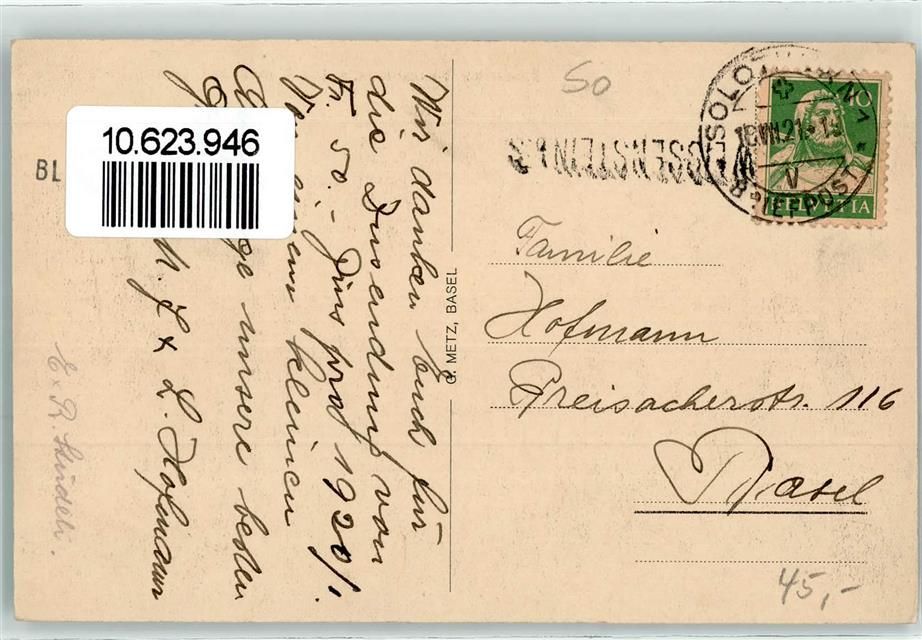 50
SOLOTHURN 1
18.VII.21
V
BRIEFPOST
10
HELVETIA
10.623.946
BL
Wir danken Euch für
die Zusendung von
Fr. 50.- Zins pro 1920/1.
Vom kleinen
unsere besten
L. Hofmann
E. R. Stüdeli.
G. METZ, BASEL
Familie
Hofmann
Breisacherstr. 116
Basel
45,-